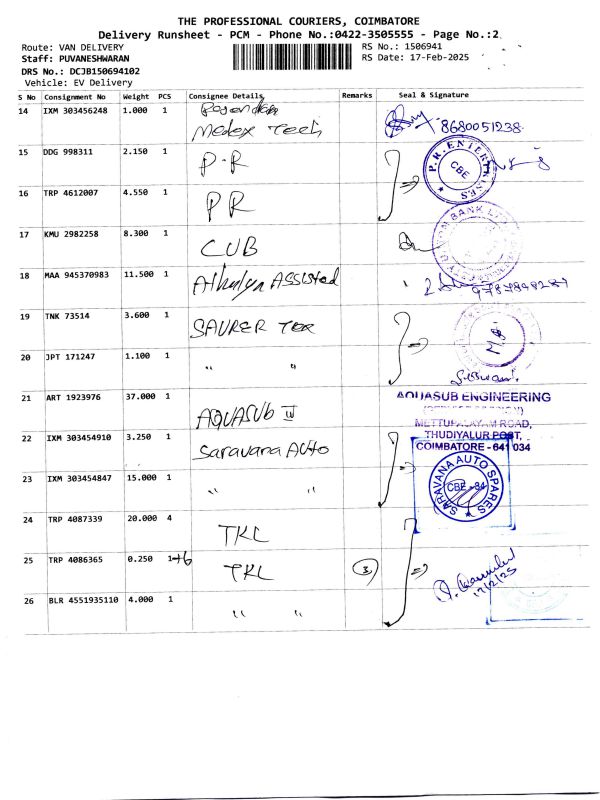 THE PROFESSIONAL COURIERS, COIMBATORE
Delivery Runsheet - PCM - Phone No.:0422-3505555 - Page No.:2
Route: VAN DELIVERY
RS No.: 1506941
Staff: PUVANESHWARAN
RS Date: 17-Feb-2025
DRS No.: DCJB150694102
Vehicle: EV Delivery
S No Consignment No Weight PCS Consignee Details Remarks Seal & Signature
14 IXM 303456248 1.000 1
Medex Tech 8680051238
15 DDG 998311 2.150 1 P-R
P.R. ENTERPRISES CBE
16 TRP 4612007 4.550 1 PR
17 KMU 2982258 8.300 1 CUB
BANK
18 MAA 945370983 11.500 1 Athulya Assisted
9787898287
19 TNK 73514 3.600 1 SAURER
20 JPT 171247 1.100 1 " "
21 ART 1923976 37.000 1 AQUASUB IV
AQUASUB ENGINEERING
METTUPALAYAM ROAD,
THUDIYALUR POST,
COIMBATORE - 641 034
22 IXM 303454910 3.250 1 Saravana Auto
23 IXM 303454847 15.000 1 " "
SARAVANA AUTO SPARES CBE - 34
24 TRP 4087339 20.000 4 TKL
25 TRP 4086365 0.250 1+6 TKL 3
17/2/25
26 BLR 4551935110 4.000 1 " "